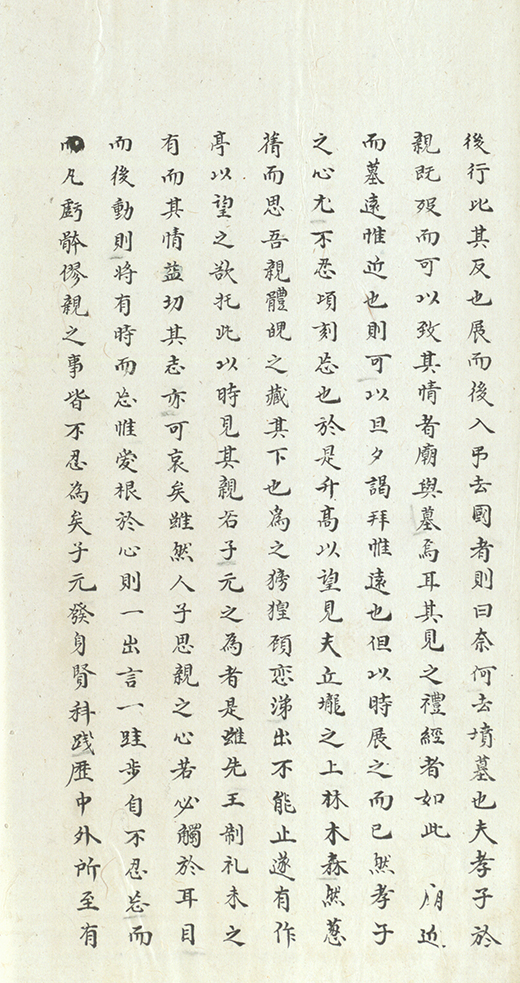 後行此其反也展而後入弔去國者則曰奈何去墳墓也夫孝子於
親既歿而可以致其情者廟與墓焉耳其見之禮經者如此 近
而墓遠惟近也則可以旦夕謁拜惟遠也但以時展之而已然孝子
之心尤不忍頃刻忘也於是升髙以望見夫丘壠之上林木森然蔥
蒨而思吾親體魄之藏其下也爲之徬徨顧恋涕出不能止遂有作
亭以望之欲托此以時見其親若子元之為者是雖先王制礼未之
有而其情益切其志亦可哀矣雖然人子思親之心若必觸於耳目
而後動則將有時而忘惟愛根於心則一出言一跬步自不忍忘而
凡虧骵僇親之事皆不忍為矣子元發身賢科踐歷中外所至有